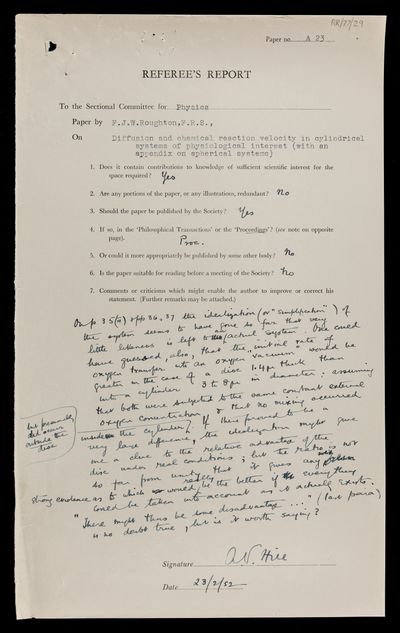 RR/77/29
Paper no. A 23
REFEREE'S REPORT
To the Sectional Committee for Physics
Paper by F.J.W.Roughton,F.R.S.,
On Diffusion and chemical reaction velocity in cylindrical
systems of physiological interest (with an
appendix on spherical systems)
1. Does it contain contributions to knowledge of sufficient scientific interest for the
space required? Yes
2. Are any portions of the paper, or any illustrations, redundant? No
3. Should the paper be published by the Society? Yes
4. If so, in the 'Philosophical Transactions' or the 'Proceedings'? (see note on opposite
page). Proc.
5. Or could it more appropriately be published by some other body? No
6. Is the paper suitable for reading before a meeting of the Society? No
7. Comments or criticisms which might enable the author to improve or correct his
statement. (Further remarks may be attached.)
On p 35(a) & pp 36, 37 the idealization (or "simplification") of
the system seems to have gone so far that very
little likeness is left to an actual system. One could
have guessed, also, that the "initial rate of
oxygen transfer into an oxygen vacuum" would be
greater in the case of a disc 1·4μ thick than
into a cylinder 3 to 8μ in diameter: assuming
that both were subjected to the same constant external
oxygen concentration & that no mixing occurred
inside the cylinder. If there proved to be a
but presumably
did occur
outside the
disc
very large difference, the idealization might give
me a clue to the relative advantage of the
disc under real conditions; but the ratio is not
so far from unity that it gives any
strong evidence as to which would really be the better if everything
could be taken into account as it actually exists.
"There might thus be some disadvantage ..." (last para)
is no doubt true, but is it worth saying?
Signature A.V. Hill
Date 23/2/52